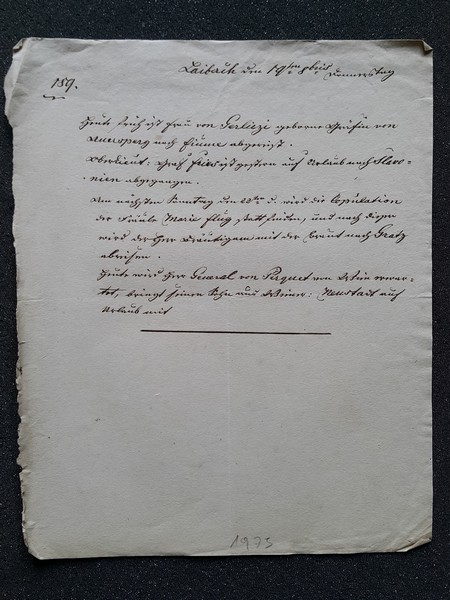 Laibach den 19ten 8bris Donnerstag
159.
Heute früh ist Frau von Gerliczi geborne Gräfin von
Auersperg nach Fiume abgereist.
Oberlieut: Graf Fries ist gestern auf Urlaub nach Slavo-
nien abgegangen.
Am nächsten Sonntag den 22ten d. wird die Copulation
der Fräule Marie Flug, statt finden, und nach dieser
wird der Herr Bräutigam mit der Braut nach Gratz
abreisen.
Heute wird Herr General von Pirquet von Wien erwar-
tet, bringt seinen Sohn aus Wiener: Neustadt auf
Urlaub mit
1975